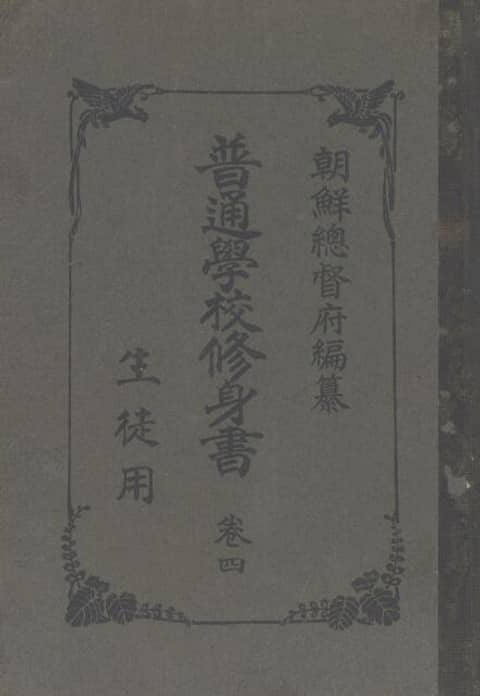 朝鮮總督府編纂
普通學校修身書 卷四
生徒用